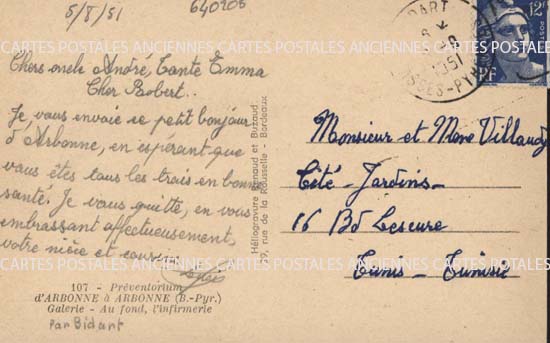 5/8/51
640205
Chers oncle André, Tante Emma
Cher Robert..
Je vous envoie se petit bonjour
d'Arbonne, en espérant que
vous êtes tous les trois en bonne
santé. Je vous quitte, en vous
embrassant affectueusement,
votre nièce et cousine
107 - Préventorium
d'ARBONNE à ARBONNE (B.-Pyr.)
Galerie - Au fond, l'infirmerie
par Bidart
Héliogravure Renaud et Buzaud
rue de la Rousselle Bordeaux
DART
1951
SES-PYR
12F
RF
Monsieur et Mme Villaudy
Cité-Jardins-
16 Bd Lescure
Tunis - Tunisie
CARTES POSTALES ANCIENNES CARTES POSTALES ANCIENNES CARTES POSTALES ANCIENNES
CARTES POSTALES ANCIENNES CARTES POSTALES ANCIENNES CARTES POSTALES ANCIENNES